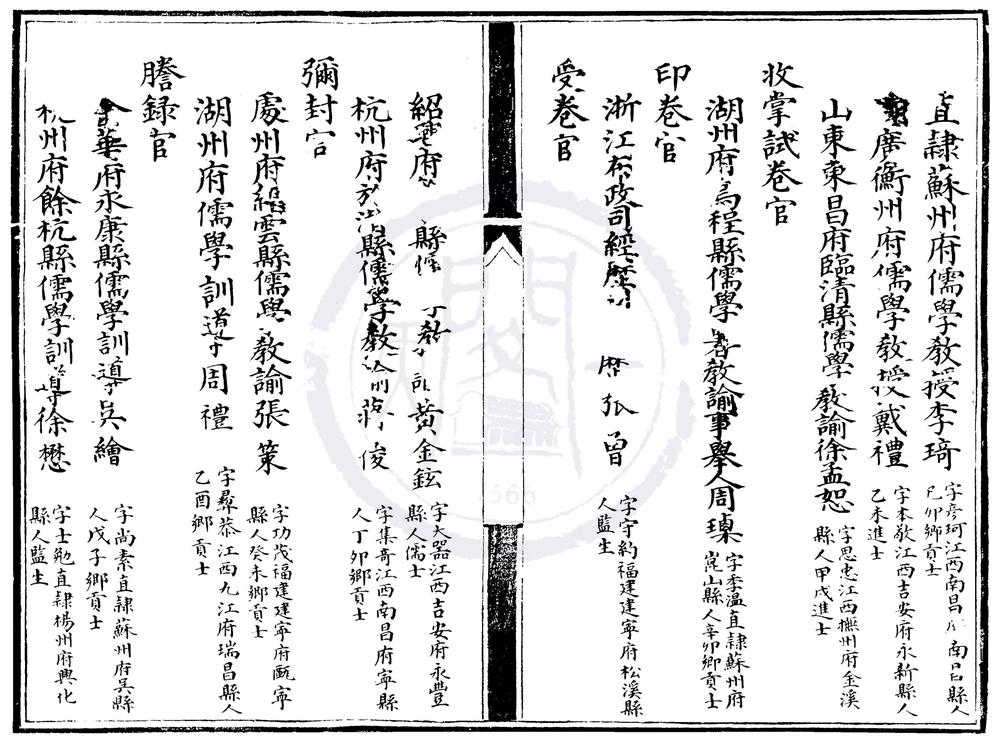 直隸蘇州府儒學教授李琦
字彥珂江西南昌府南昌縣人
己卯鄉貢士
廣衡州府儒學教授戴禮
字本敬江西吉安府永新縣人
乙未進士
山東東昌府臨清縣儒學教諭徐孟恕
字思忠江西撫州府金溪
縣人甲戌進士
收掌試卷官
湖州府烏程縣儒學署教諭事舉人周璪
字季溫直隸蘇州府
崑山縣人辛卯鄉貢士
印卷官
浙江布政司經歷司 歷張曾
字守約福建建寧府松溪縣
人監生
受卷官
紹興府 縣儒 教 黃金鉉
字大器江西吉安府永豐
縣人儒士
杭州府於潛縣儒學教諭 俊
字集奇江西南昌府寧縣
人丁卯鄉貢士
彌封官
處州府縉雲縣儒學教諭張策
字功茂福建建寧府甌寧
縣人癸未鄉貢士
湖州府儒學訓導周禮
字彞恭江西九江府瑞昌縣人
乙酉鄉貢士
謄錄官
金華府永康縣儒學訓導吳繪
字尚素直隸蘇州府吳縣
人戊子鄉貢士
杭州府餘杭縣儒學訓導徐懋
字士勉直隸楊州府興化
縣人監生